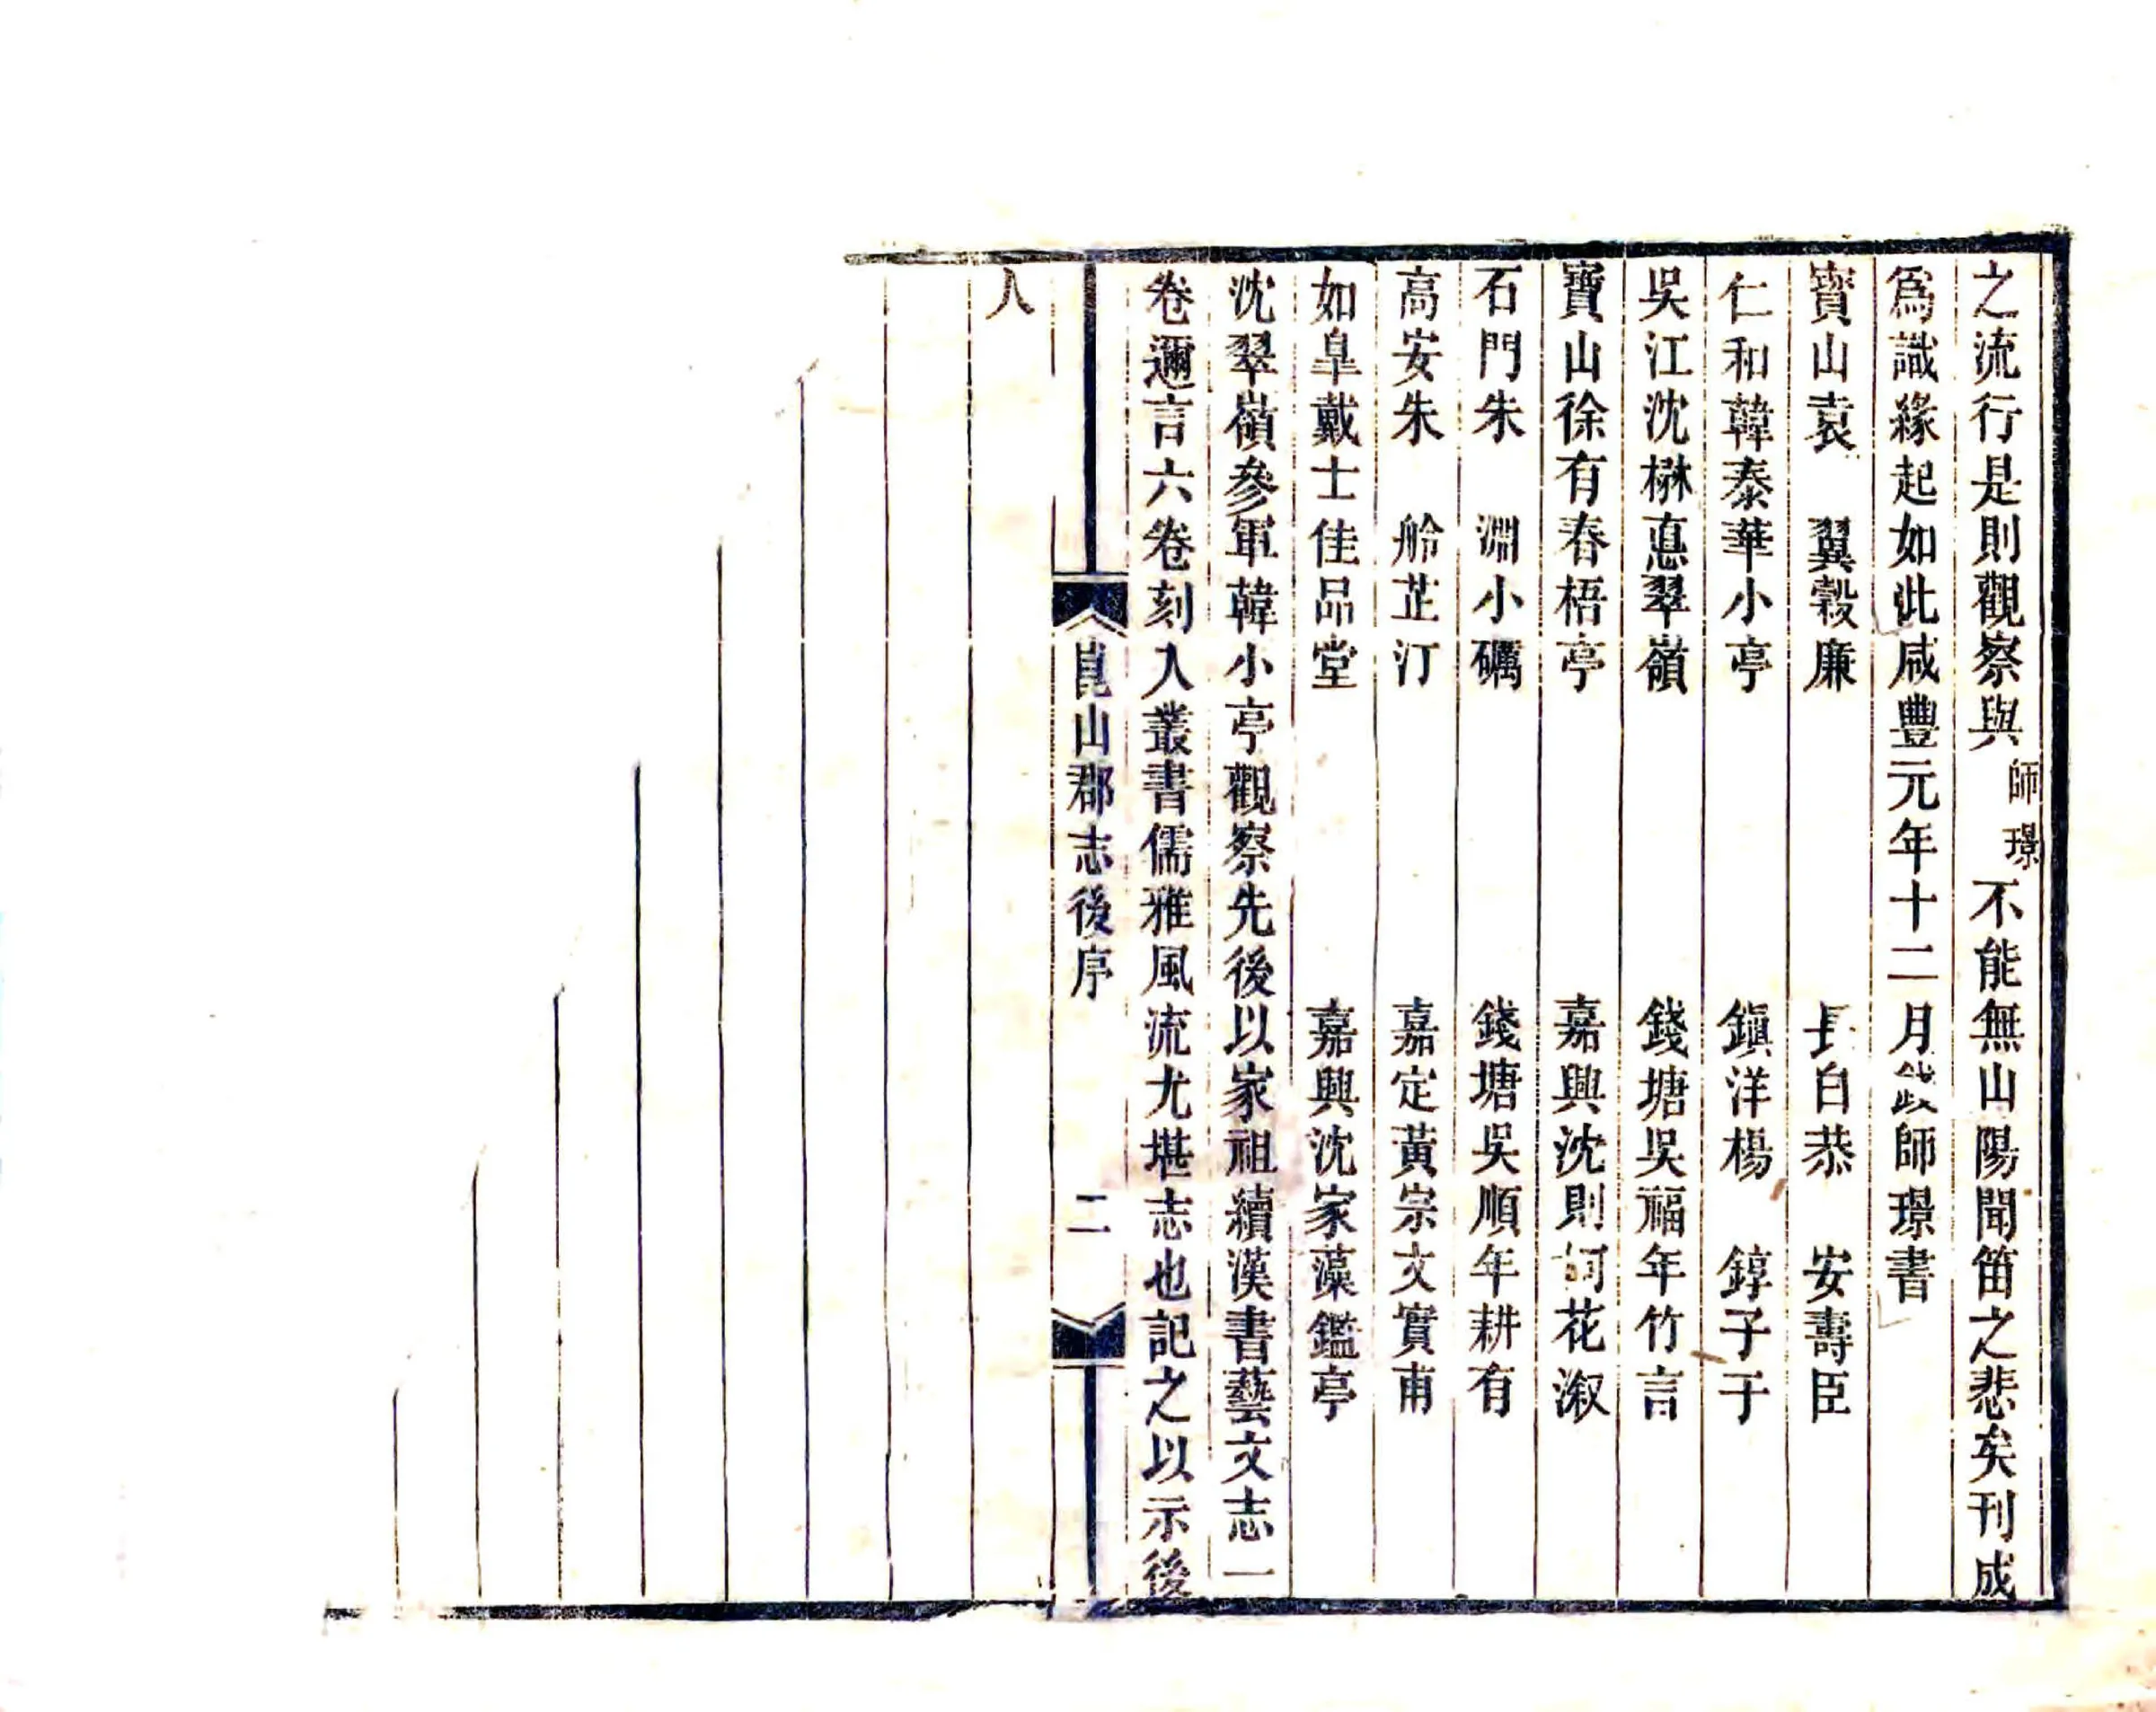 之流行是則觀察與師璟不能無山陽聞笛之悲矣刊成
爲識緣起如此咸豐元年十二月錢師璟書
寶山袁　翼穀廉　長白恭　安壽臣
仁和韓泰華小亭　鎭洋楊　錞子于
吳江沈楙悳翠嶺　錢塘吳福年竹言
寶山徐有春梧亭　嘉興沈則訶花漵
石門朱　淵小礪　錢塘吳順年耕有
高安朱　舲芷汀　嘉定黃宗文實甫
如皐戴士佳品堂　嘉興沈家藻鑑亭
沈翠嶺參軍韓小亭觀察先後以家祖續漢書藝文志一
卷邇言六卷刻入叢書儒雅風流尤堪志也記之以示後
崑山郡志後序　二
人